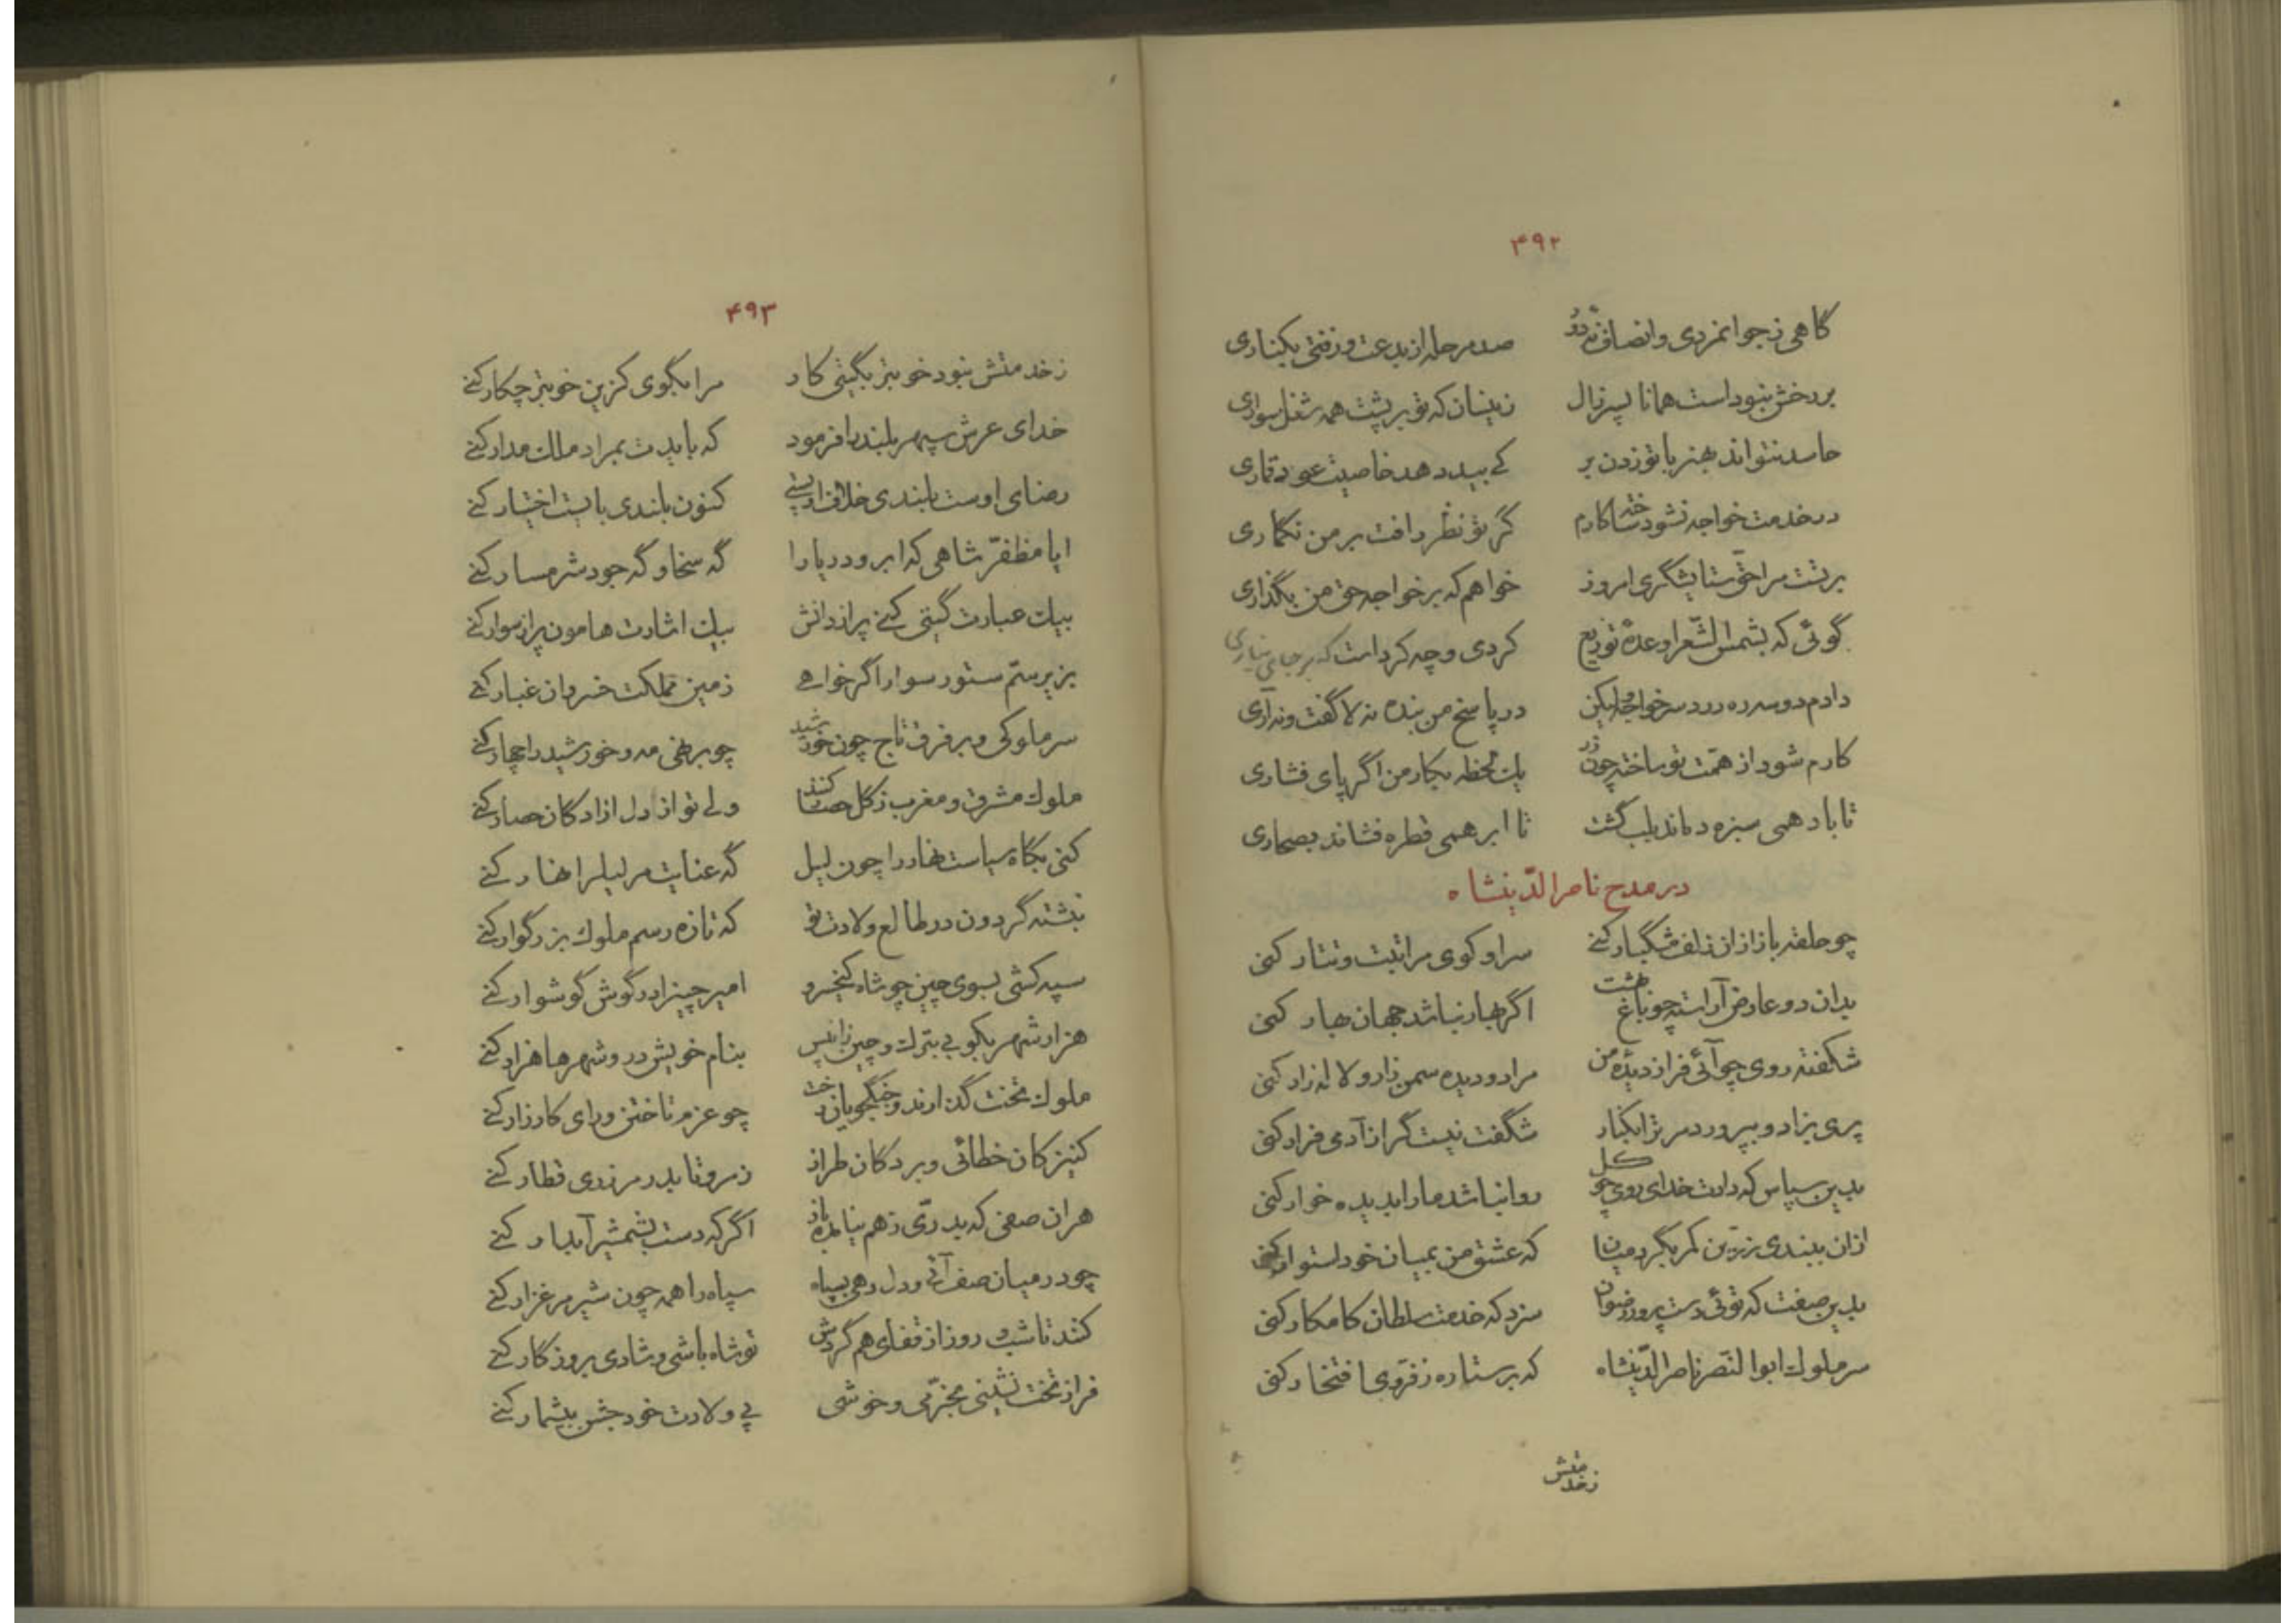 ۴۹۲
گاهی ز جوانمردی و انصاف تو دور صد مرحله از بدعت و زفتی بکناری
بر رخش نبوداست همانا پسر زال زینسان که تو بر پشت همه شغل سواری
حاسد نتواند بهنر با تو زدن بر کی بید دهد خاصیت عود قماری
در خدمت خواجه نشود ساخته کارم گر تو نظر رافت بر من نگماری
برتست مرا حق ستایشگری امروز خواهم که بر خواجه حق من بگذاری
گوئی که بشمس الشعرا وعدهٔ تودیع کردی و چه کرداست که بر جای نیاری
دادم دو سه ره درد سر خواجه ولیکن در پاسخ من بنده نه لا گفت و نه آری
کارم شود از همت تو ساخته چون زر یک لحظه بکار من اگر پای فشاری
تا باد همی سبزه دماند بلب کشت تا ابر همی قطره فشاند بصحاری
در مدح ناصرالدینشاه
چو حلقه باز از ان زلف مشگبار کنی سرا و کوی مرا تبت و تتار کنی
بدان دو عارض آراسته چو باغ بهشت اگر بهار نباشد جهان بهار کنی
شکفته روی چو آئی فراز دیدهٔ من مرا دو دیده سمن زار و لاله زار کنی
پری بزاد و بپرورد مر ترا بکنار شگفت نیست گر از آدمی فرار کنی
بدین سپاس که دادت خدای روی چو گل روا نباشد ما را بدیده خوار کنی
ازان ببندی زرین کمر بگرد میان که عشق من بمیان خود استوار کنی
بدین صفت که توئی دست پرور رضوان سزد که خدمت سلطان کامکار کنی
سر ملوک ابوالنصر ناصرالدینشاه که بر ستاره ز فر وی افتخار کنی
زخدمتش
۴۹۳
زخدمتش نبود خوبتر بگیتی کار مرا بگوی کزین خوبتر چکار کنی
خدای عرش سپهر بلند را فرمود که بایدت بمراد ملک مدار کنی
رضای اوست بلندی خلاف او پستی کنون بلندی یا پست اختیار کنی
ایا مظفر شاهی که ابر و دریا را گه سخا و گه جود شرمسار کنی
بیک عبارت گیتی کنی پر از دانش بیک اشارت هامون پر از سوار کنی
بزیر سم ستور سوار اگر خواهی زمین مملکت خسروان غبار کنی
سر ملوکی و بر فرق تاج چون خورشید چو برنهی مه و خورشید را چهار کنی
ملوک مشرق و مغرب ز گل حصار کنند ولی تو از دل ازادگان حصار کنی
کنی بگاه سیاست نهار را چون لیل گه عنایت مر لیل را نهار کنی
نبشته گردون در طالع ولادت تو که تازه رسم ملوک بزرگوار کنی
سپه کشی بسوی چین چو شاه کیخسرو امیر چین را در گوش گوشوار کنی
هزار شهر بکوبی بترک و چین زان پس بنام خویش درو شهرها هزار کنی
ملوک تخت گذارند و جنگجویان رخت چو عزم تاختن و رای کارزار کنی
کنیزکان خطائی و بردگان طراز ز مرو تا بدر مرز ری قطار کنی
هران صفی که بدری زهم نیاید باز اگر که دست بشمشیر آبدار کنی
چو در میان صف آئی و دل دهی بسپاه سپاه را همه چون شیر مرغزار کنی
کند تا شب و روز از قفای هم گردش تو شاه باشی و شادی بروزگار کنی
فراز تخت نشینی بخرمی و خوشی پی ولادت خود جشن بیشمار کنی